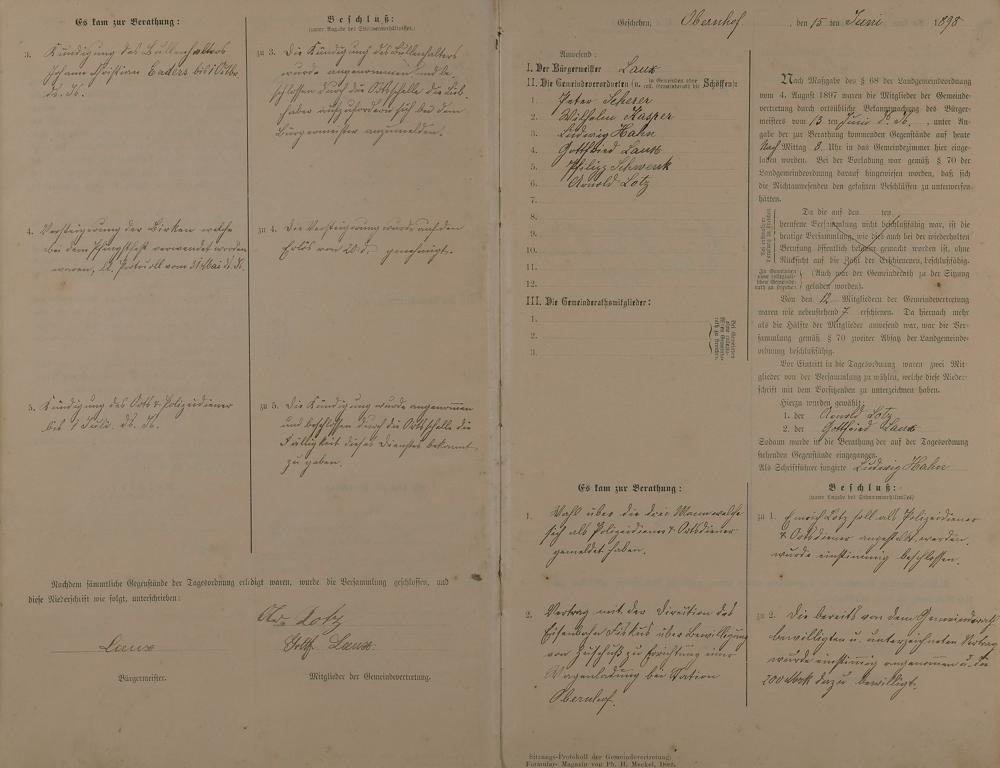 Es kam zur Berathung:
Beschluß:
(unter Angabe des Stimmenverhältnisses.)
3. Kündigung des Bullenhalters
Johann Christian Enders bis 1 Oktbr.
ds. Js.
zu 3. Die Kündigung des Bullenhalters
wurde angenommen und be-
schlossen durch die Ortsschelle die Lieb-
haber aufzufordern sich bei dem
Bürgermeister anzumelden.
4. Versteigerung der Birken welche
bei dem Pfingstfest verwendet worden
waren, lt. Protocoll vom 31 Mai d. Js.
zu 4. Die Versteigerung wurde auf den
Erlös von genehmigt.
5. Kündigung des Orts & Polizeidiener
bis 1 Juli. ds. Js.
zu 5. Die Kündigung wurde angenommen
und beschlossen durch die Ortsschelle die
Fälligkeit dieses Dienstes bekannt
zu geben.
Nachdem sämmtliche Gegenstände der Tagesordnung erledigt waren, wurde die Versammlung geschlossen, und
diese Niederschrift wie folgt, unterschrieben:
Ar. Lotz
Laux
Gottf. Laux
Bürgermeister.
Mitglieder der Gemeindevertretung.
Geschehen, Obernhof, den 15 ten Juni 1898
Anwesend:
I. Der Bürgermeister Laux
II. Die Gemeindeverordneten (u. in Gemeinden ohne koll. Gemeinderath die Schöffen):
1. Peter Scherer
2. Wilhelm Kasper
3. Ludwig Hahn
4. Gottfried Laux
5. Philipp Schwenk
6. Arnold Lotz
7.
8.
9.
10.
11.
12.
III. Die Gemeinderathsmitglieder:
1.
2.
3.
Nach Maßgabe des § 68 der Landgemeindeordnung
vom 4. August 1897 waren die Mitglieder der Gemeinde-
vertretung durch ortsübliche Bekanntmachung des Bürger-
meisters vom 13 ten Juni d. Js., unter An-
gabe der zur Berathung kommenden Gegenstände auf heute
Nach Mittag 8. Uhr in das Gemeindezimmer hier einge-
laden worden. Bei der Vorladung war gemäß § 70 der
Landgemeindeordnung darauf hingewiesen worden, daß sich
die Nichtanwesenden den gefaßten Beschlüssen zu unterwerfen
hätten.
Da die auf den ten
berufene Versammlung nicht beschlußfähig war, ist die
heutige Versammlung, wie dies auch bei der wiederholten
Berufung öffentlich bekannt gemacht worden ist, ohne
Rücksicht auf die Zahl der Erschienenen, beschlußfähig.
(Auch war der Gemeinderath zu der Sitzung
geladen worden).
Von den 12 Mitgliedern der Gemeindevertretung
waren wie nebenstehend 7 erschienen. Da hiernach mehr
als die Hälfte der Mitglieder anwesend war, war die Ver-
sammlung gemäß § 70 zweiter Absatz der Landgemeinde-
ordnung beschlußfähig.
Vor Eintritt in die Tagesordnung waren zwei Mit-
glieder von der Versammlung zu wählen, welche diese Nieder-
schrift mit dem Vorsitzenden zu unterzeichnen haben.
Hierzu wurden gewählt:
1. der Arnold Lotz
2. der Gottfried Laux
Sodann wurde in die Berathung der auf der Tagesordnung
stehenden Gegenstände eingegangen.
Als Schriftführer fungirte Ludwig Hahn
Es kam zur Berathung:
Beschluß:
(unter Angabe des Stimmenverhältnisses)
1. Wahl über die drei Mann welche
sich als Polizeidiener & Ortsdiener
gemeldet haben.
zu 1. Emrich Lotz soll als Polizeidiener
& Ortsdiener angestellt werden.
wurde einstimmig beschlossen.
2. Vertrag mit der Direction des
Eisenbahn Fiskus über Bewilligung
von Zuschuß zu Errichtung einer
Wagenladung bei Station
Obernhof.
zu 2. Die bereits von dem Gemeinderath
bewilligten u. unterzeichneten Vertrag
wurde einstimmig angenommen u. die
200 Mark dazu bewilligt.
Sitzungs-Protokoll der Gemeindevertretung.
Formular-Magazin von Ph. H. Meckel, Diez.